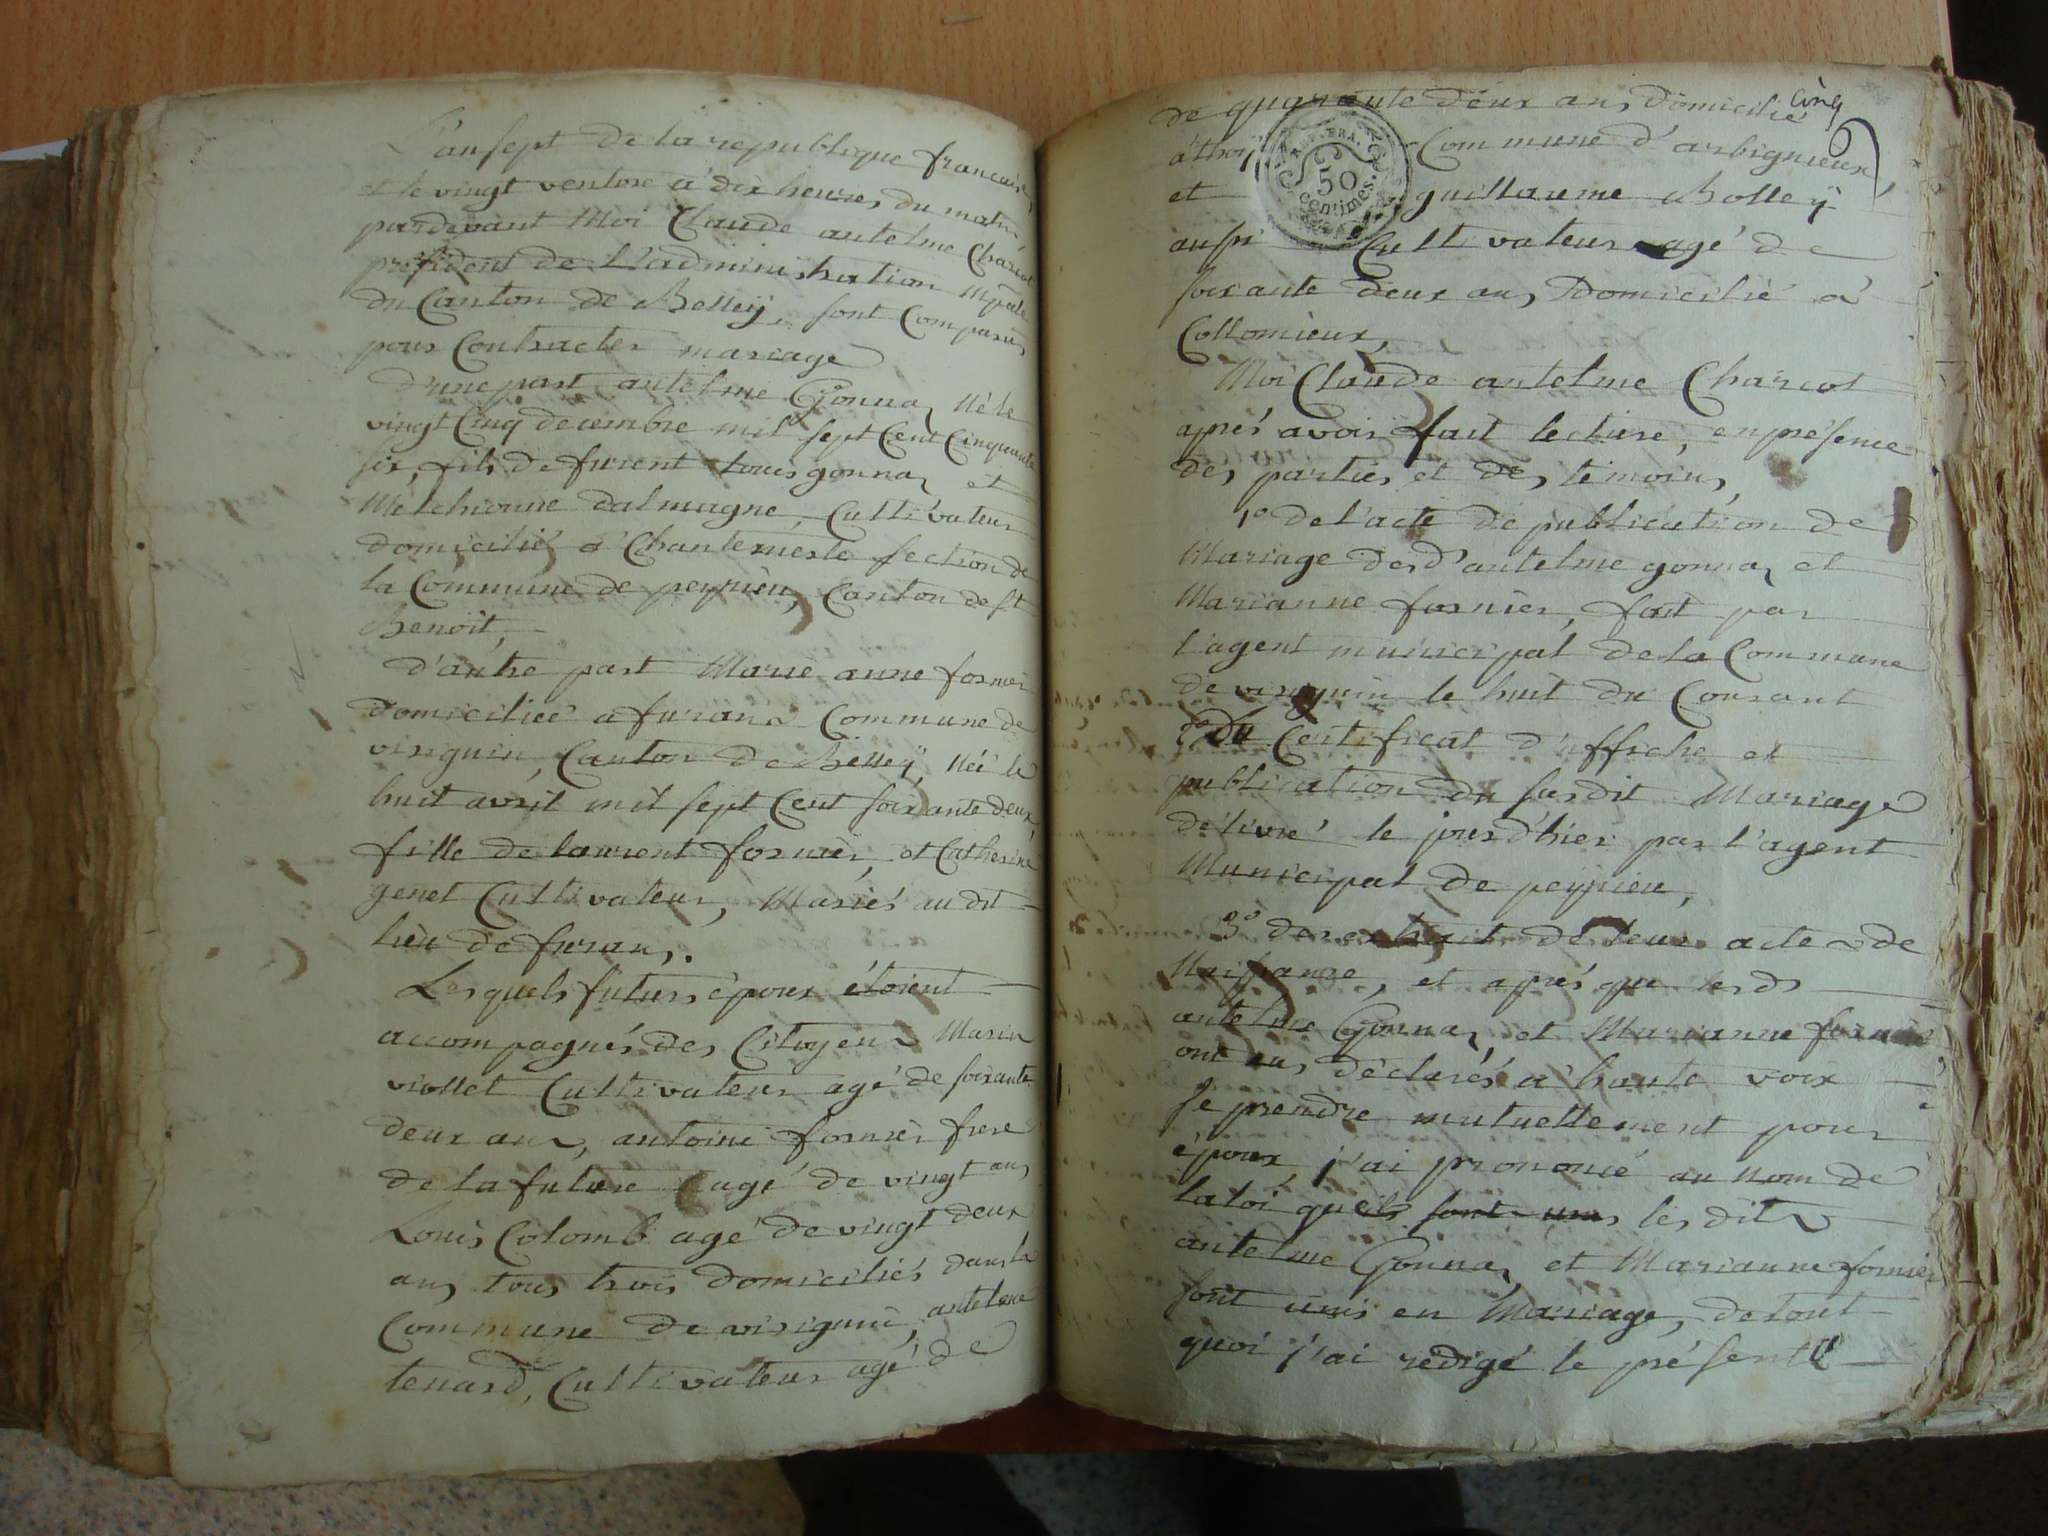 L'an sept de la republique francaise
et le vingt ventose a dix heures du matin
pardevant Moi Claude antelme Charcot
président de L'administration Mpale
du Canton de Belleÿ, sont Comparus
pour Contracter mariage
D'une part antelme Gonnaz Né le
vingt Cinq decembre mil sept Cent Cinquante
six, fils de furent Louis gonnaz et
Melchionne Dalmagne, Cultivateur
domicilié à Chantemesle section de
la Commune de peyrieu, Canton de st
Benoit,
d'autre part Marie anne fornier
domiciliée a furans Commune de
viriguin, Canton de Belleÿ, Née le
huit avril mil sept Cent soixante deux
fille de laurent fornier, et Catherine
genet Cultivateurs, Mariés au dit
lieu de furans.
Lesquels futurs époux étoient
accompagnés des Citoyens Marin
viollet Cultivateur agé de soixante
deux ans, antoine fornier frere
de la future agé de vingt ans
Louis Colomb agé de vingt deux
ans tous trois domiciliés dans la
Commune de viriguin, antelme
tenard, Cultivateur agé de
Cinq
de quarante deux ans, Domicilié
à thoÿ Commune d'arbignieux,
et guillaume Bolleÿ
REP. FRA.
50
centimes.
aussi Cultivateur agé de
soixante deux ans, Domicilié à
Collomieux,
Moi Claude antelme Charcot
après avoir fait lecture, en présence
des parties et des temoins,
1° de l'acte de publication de
Mariage desd' antelme gonnaz et
Marianne fornier, fait par
l'agent municipal de la Commune
de viriguin le huit du Courant
2° du Certificat d'affiche et
publication du susdit Mariage
délivré le jour d'hier par l'agent
Municipal de peyrieu,
3° des extraits de leurs actes de
Naissance, et après que lesds
antelme Gonnaz et Marianne fornier
ont eus déclarés a haute voix
se prendre mutuellement pour
époux, j'ai prononcé au nom de
la loi quils sont unis les dits
antelme Gonnaz et Marianne fornier
sont unis en Mariage, de tout
quoi j'ai redigé le présent